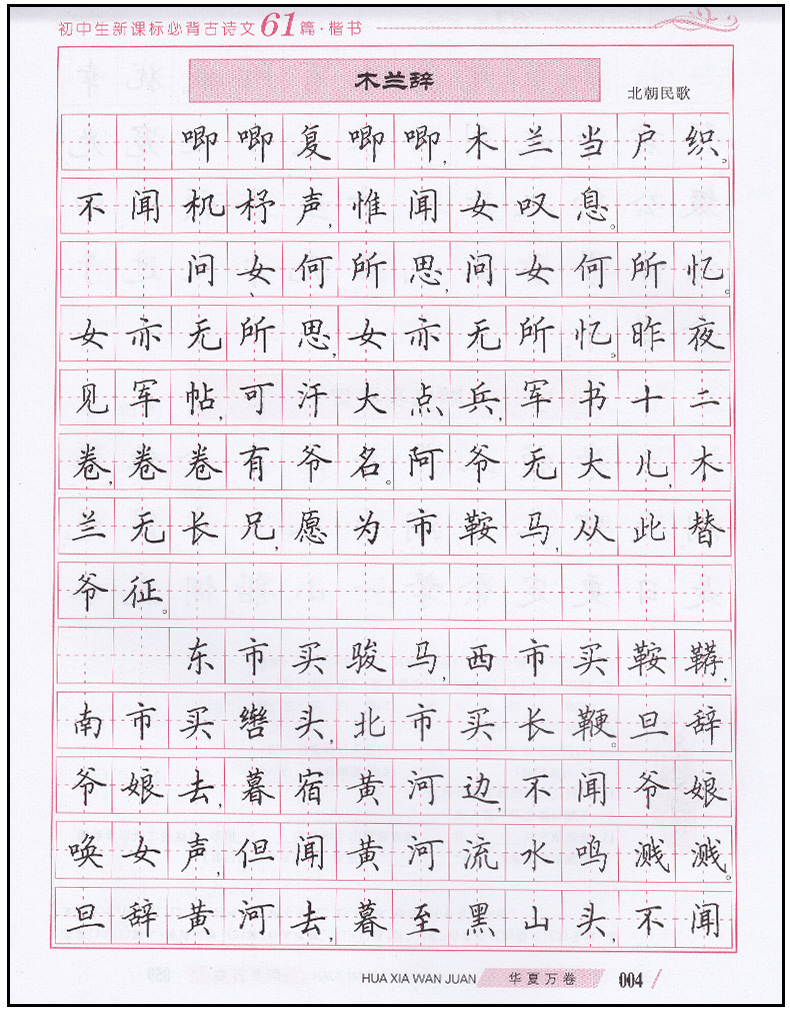 初中生新课标必背古诗文61篇·楷书
木兰辞
北朝民歌
唧唧复唧唧,木兰当户织。
不闻机杼声,惟闻女叹息。
问女何所思,问女何所忆。
女亦无所思,女亦无所忆。昨夜
见军帖,可汗大点兵,军书十二
卷,卷卷有爷名。阿爷无大儿,木
兰无长兄,愿为市鞍马,从此替
爷征。
东市买骏马,西市买鞍鞯,
南市买辔头,北市买长鞭。旦辞
爷娘去,暮宿黄河边,不闻爷娘
唤女声,但闻黄河流水鸣溅溅。
旦辞黄河去,暮至黑山头,不闻
HUA XIA WAN JUAN 华夏万卷 004